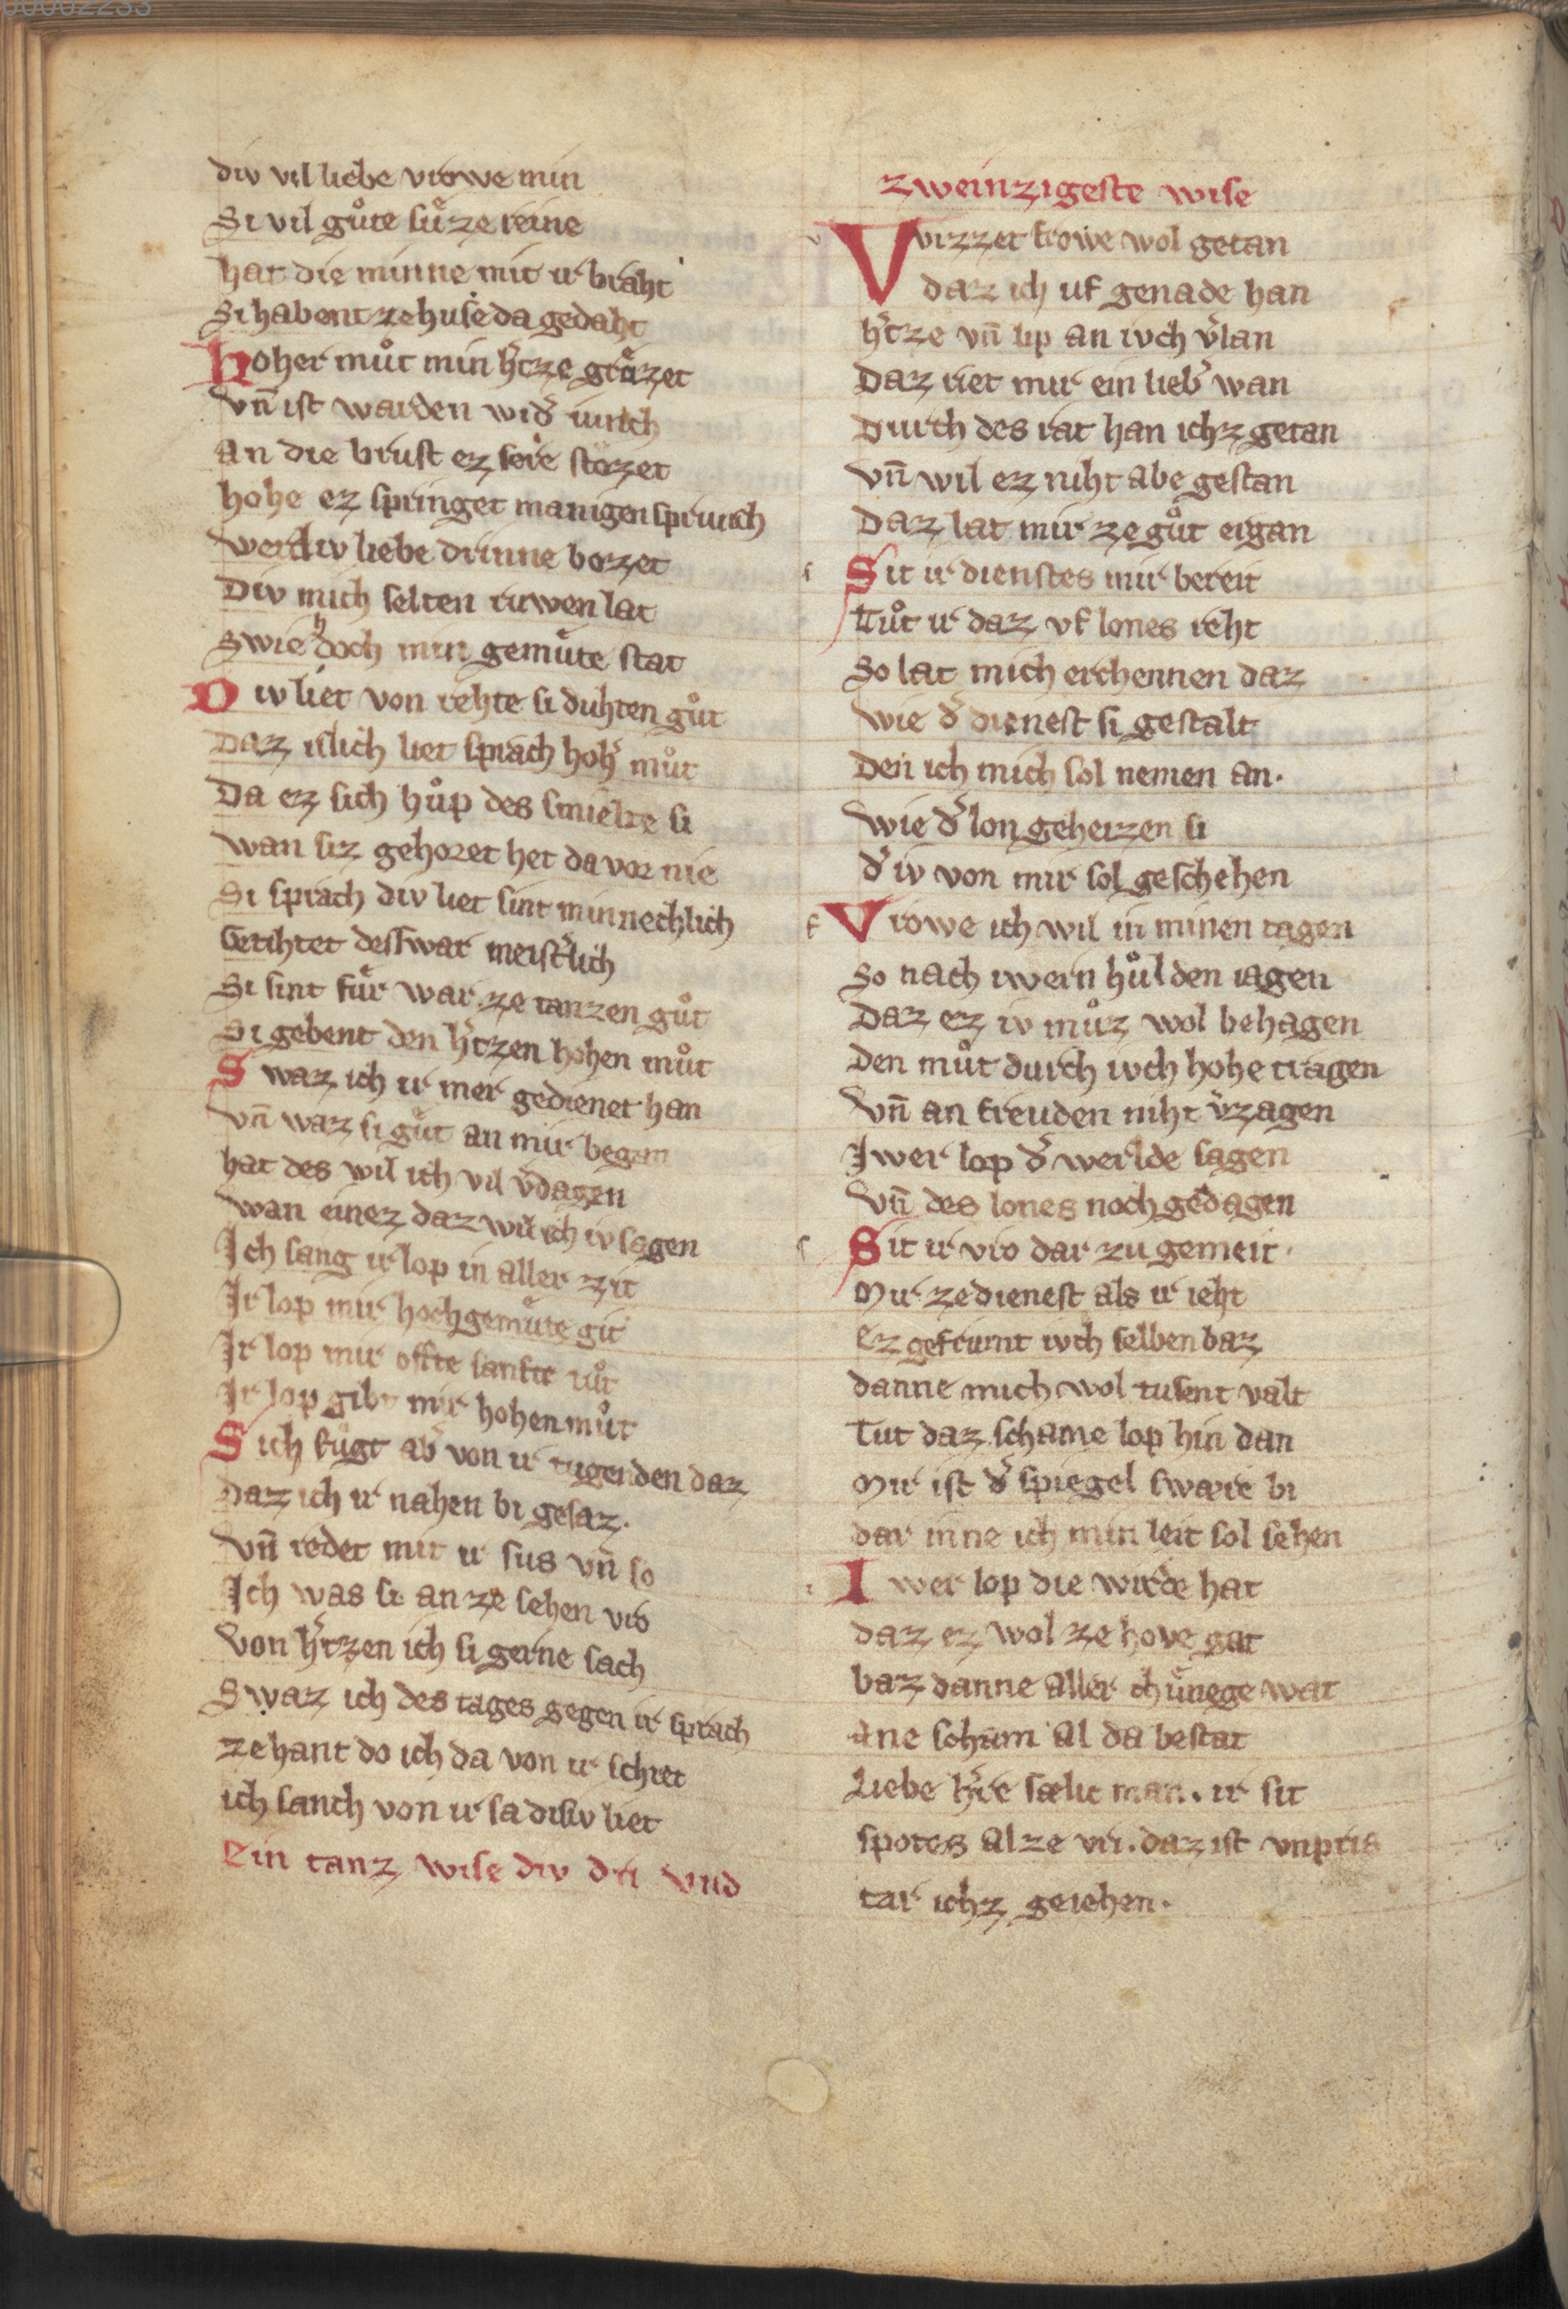 div vil liebe vrowe min
Si vil gůte sůze reine
hat die minne mit ir braht
Si habent ze huse da gedaht
hoher můt min h̾tze grözet
Vn̄ ist warden wid̾ iunch
An die brust ez sere stözet
hohe ez springet manigen sprunch
Wer div liebe drinne bozet
Div mich selten ruwen lat
Swie doch min gemůte stat
Div liet von rehte si duhten gůt
Daz islich liet sprach hoh̾ můt
Da ez sich hůp des smielte si
Wan siz gehoret het da vor nie
Si sprach div liet sint minnechlich
Getihtet desswar meist̾lich
Si sint fůr war ze tanzen gůt
Si gebent den h̾tzen hohen můt
Swaz ich ir mer gedienet han
Vn̄ waz si gůt an mir began
hat des wil ich vil v̾dagen
Wan einez daz wil ich iv sagen
Ich sang ir lop in aller zit
Ir lop mir hochgemůte git
Ir lop mir offte sanfte tůt
Ir lop gibt mir hohen můt
Sich fůgt ab̾ von ir tugenden daz
Daz ich ir nahen bi gesaz.
Vn̄ redet mit ir sus vn̄ so
Ich was si an ze sehen vro
Von h̾tzen ich si gerne sach
Swaz ich des tages gegen ir sprach
ze hant do ich da von ir schiet
ich sanch von ir sa disiv liet
Ein tanz wise div dri vnd
zweinzigeste wise
Vvizzet frowe wol getan
daz ich uf genade han
h̾tze vn̄ lip an ivch v̾lan
Daz riet mir ein lieb̾ wan
Durch des rat han ichz getan
Vn̄ wil ez niht abe gestan
Daz lat mir ze gůt ergan
Sit ir dienstes mir bereit
Tůt ir daz vf lones reht
So lat mich erchennen daz
Wie d̾ dienest si gestalt
Den ich mich sol nemen an.
Wie d̾ lon geheizen si
d̾ iv von mir sol geschehen
Vrowe ich wil in minen tagen
So nach iwern hůlden iagen
Daz ez iv můz wol behagen
Den můt durch ivch hohe tragen
Vn̄ an freuden niht v̾zagen
Iwer lop d̾ werlde sagen
Vn̄ des lones noch gedagen
Sit ir vro dar zu gemeit.
Mir ze dienest als ir ieht
Ez gefrumt ivch selben baz
danne mich wol tusent valt
Tut daz schame lop hin dan
Mir ist d̾ spiegel swære bi
dar inne ich min leit sol sehen
Iwer lop die wirde hat
daz ez wol ze hove gat
baz danne aller chůnege wat
ane scham al da bestat
Liebe h̾re sælic man. ir sit
spotes al ze vri. daz ist vnpris
tar ichz geiehen.